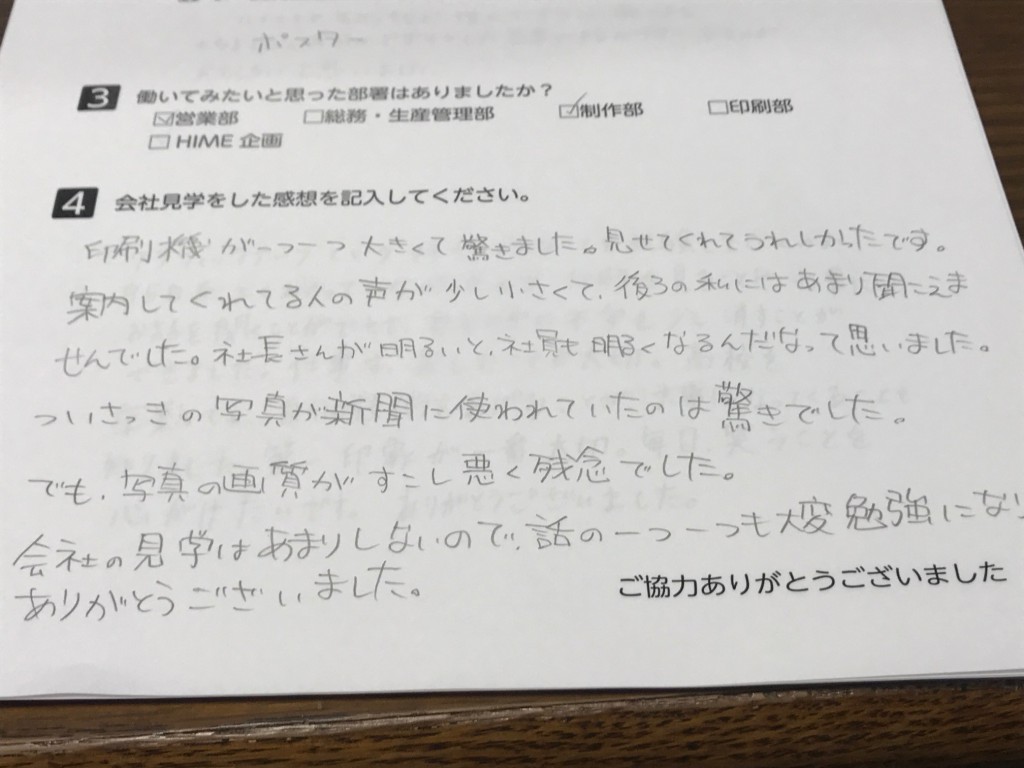 ポスター
3 働いてみたいと思った部署はありましたか?
☑営業部 □総務・生産管理部 ☑制作部 □印刷部
□HIME 企画
4 会社見学をした感想を記入してください。
印刷機が一つ一つ大きくて驚きました。見せてくれてうれしかったです。
案内してくれてる人の声が少し小さくて、後ろの私にはあまり聞こえま
せんでした。社長さんが明るいと、社員も明るくなるんだなって思いました。
ついさっきの写真が新聞に使われていたのは驚きでした。
でも、写真の画質がすこし悪く残念でした。
会社の見学はあまりしないので、話の一つ一つも大変勉強になり
ありがとうございました。
ご協力ありがとうございました